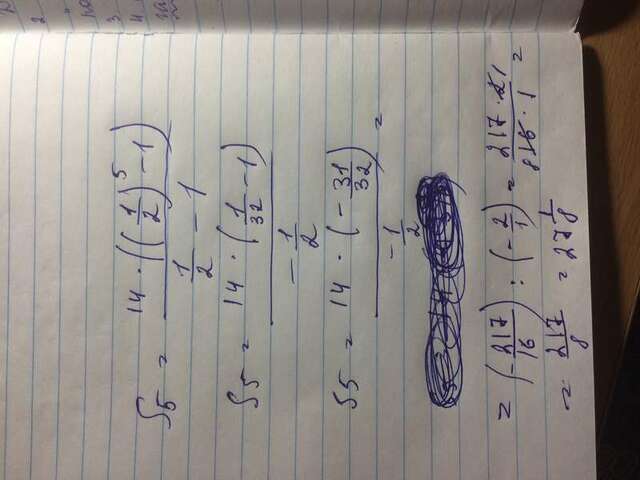 S₅ = 14 · ((1/2)⁵ - 1) / (1/2 - 1)
S5 = 14 · (1/32 - 1) / (- 1/2)
S5 = 14 · (- 31/32) / (- 1/2) =
= (- 217/16) : (- 2/1) = 217 · 2 1 / 8 16 · 1 =
= 217/8 = 27 1/8